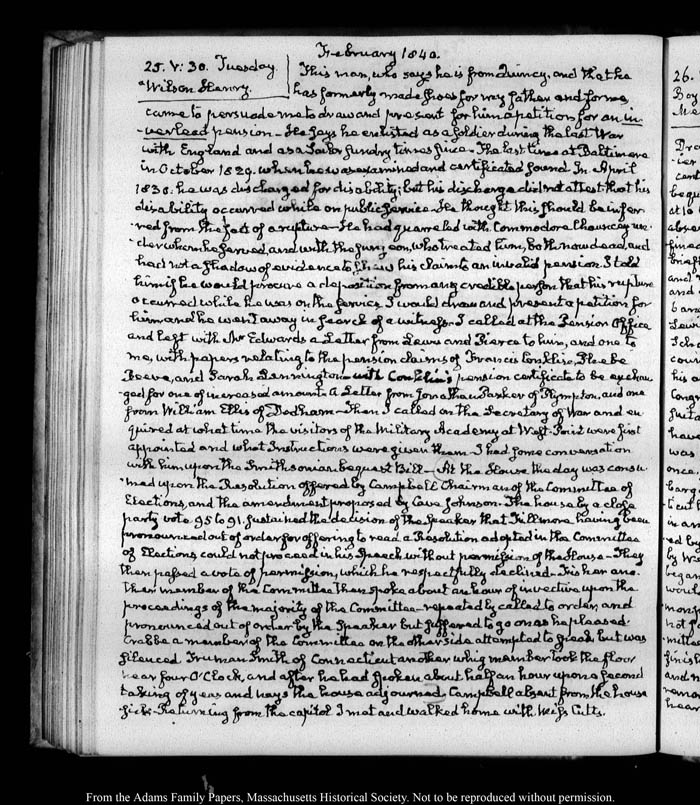 February 1840.
25. V: 30. Tuesday
Wilson Henry.
This man, who says he is from Quincy, and that he
has formerly made shoes for my father and for me
came to persuade me to draw and present for him a petition for an in-
-verlead pension_ He says he enlisted as a soldier during the last War
with England and as a Sailor sundry times since_ The last time at Baltimore
in October 1829. when he was examined and certificated sound. In April
1830. he was discharged for disability; but his discharge did not attest that his
disability occurred while on public service_ He thought this should be infer-
-red from the fact of a rupture_ He had quarrelled with Commodore Chauncey un-
-der whom he served, and with the surgeon, who treated him, both now dead, and
had not a shadow of evidence to shew his claim to an invalid pension. I told
him if he would procure a deposition from any credible person that his rupture
occurred while he was on the service I would draw and present a petition for
him and he went away in search of a witness. I called at the Pension Office
and left with Mr Edwards a Letter from Lewis and Pierce to him, and one to
me, with papers relating to the pension claims of Francis Conklin, Phebe
Beeve, and Sarah Pennington_ with Conklin's pension certificate to be exchan-
ged for one of increased amount. A Letter from Jonathan Parker of Plympton, and one
from William Ellis of Dedham_ Then I called on the Secretary of War and en-
quired at what time the visitors of the Military Academy at West-Point were first
appointed and what Instructions were given them. I had some conversation
with him upon the Smithsonian bequest Bill_ At the House the day was consu-
-med upon the Resolution offered by Campbell Chairman of the Committee of
Elections, and the amendment proposed by Cave Johnson. The house by a close
party vote 95 to 91. sustained the decision of the Speaker that Fillmore having been
pronounced out of order for offering to read a Resolution adopted in the Committee
of Elections could not proceed in his Speech without permission of the House_ They
then passed a vote of permission, which he respectfully declined_ Fisher ano-
ther member of the Committee then spoke about an hour of invective upon the
proceedings of the majority of the Committee_ repeatedly called to order, and
pronounced out of order by the Speaker but suffered to go on as he pleased
Crabb a member of the Committee on the other side attempted to speak but was
silenced Truman Smith of Connecticut another whig member took the floor
near four O'Clock, and after he had spoken about half an hour upon a second
taking of yeas and nays the house adjourned, Campbell absent from the house
sick_ Returning from the capitol I met and walked home with Miss Cutts.
26.
From the Adams Family Papers, Massachusetts Historical Society. Not to be reproduced without permission.